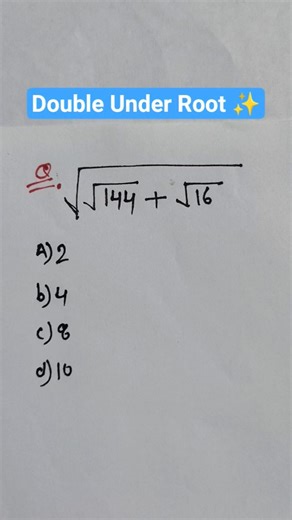 Double Under Root ✨
Q. √(√144 + √16)
A) 2
b) 4
c) 8
d) 10